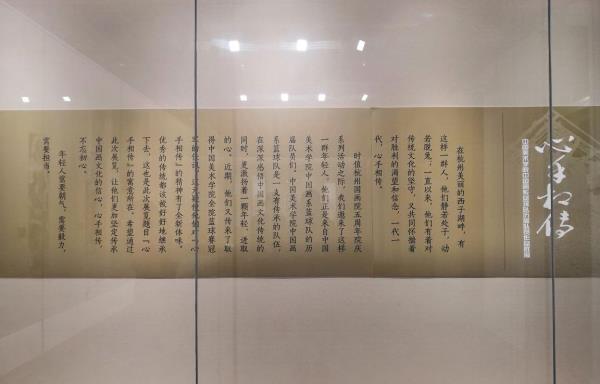 心手相传
中国美术学院中国画系篮球队历届队员作品邀请展
在杭州美丽的西子湖畔，有
这样一群人，他们静若处子，动
若脱兔；一直以来，他们有着对
传统文化的坚守，又共同怀揣着
对胜利的渴望和信念，一代一
代，心手相传。
时值杭州国画院五周年院庆
系列活动之际，我们邀来了这样
一群年轻人。他们正是来自中国
美术学院中国画系篮球队的历
届队员们。中国美术学院中国画
系篮球队是一支有传承的队伍，
在深深感悟中国画文化传统的
同时，更激扬着一颗年轻、进取
的心。近期，他们又传来了取
得中国美术学院全院篮球赛冠
军的「心
手相传」的精神有了全新体味。
优秀的传统都该被好好地继承
下去，这也是此次展览题曰『心
手相传』的寓意所在。希望通过
此次展览，让他们更加坚定传承
中国画文化的信心，心手相传，
不忘初心。
年轻人需要朝气，需要毅力，
需要担当。